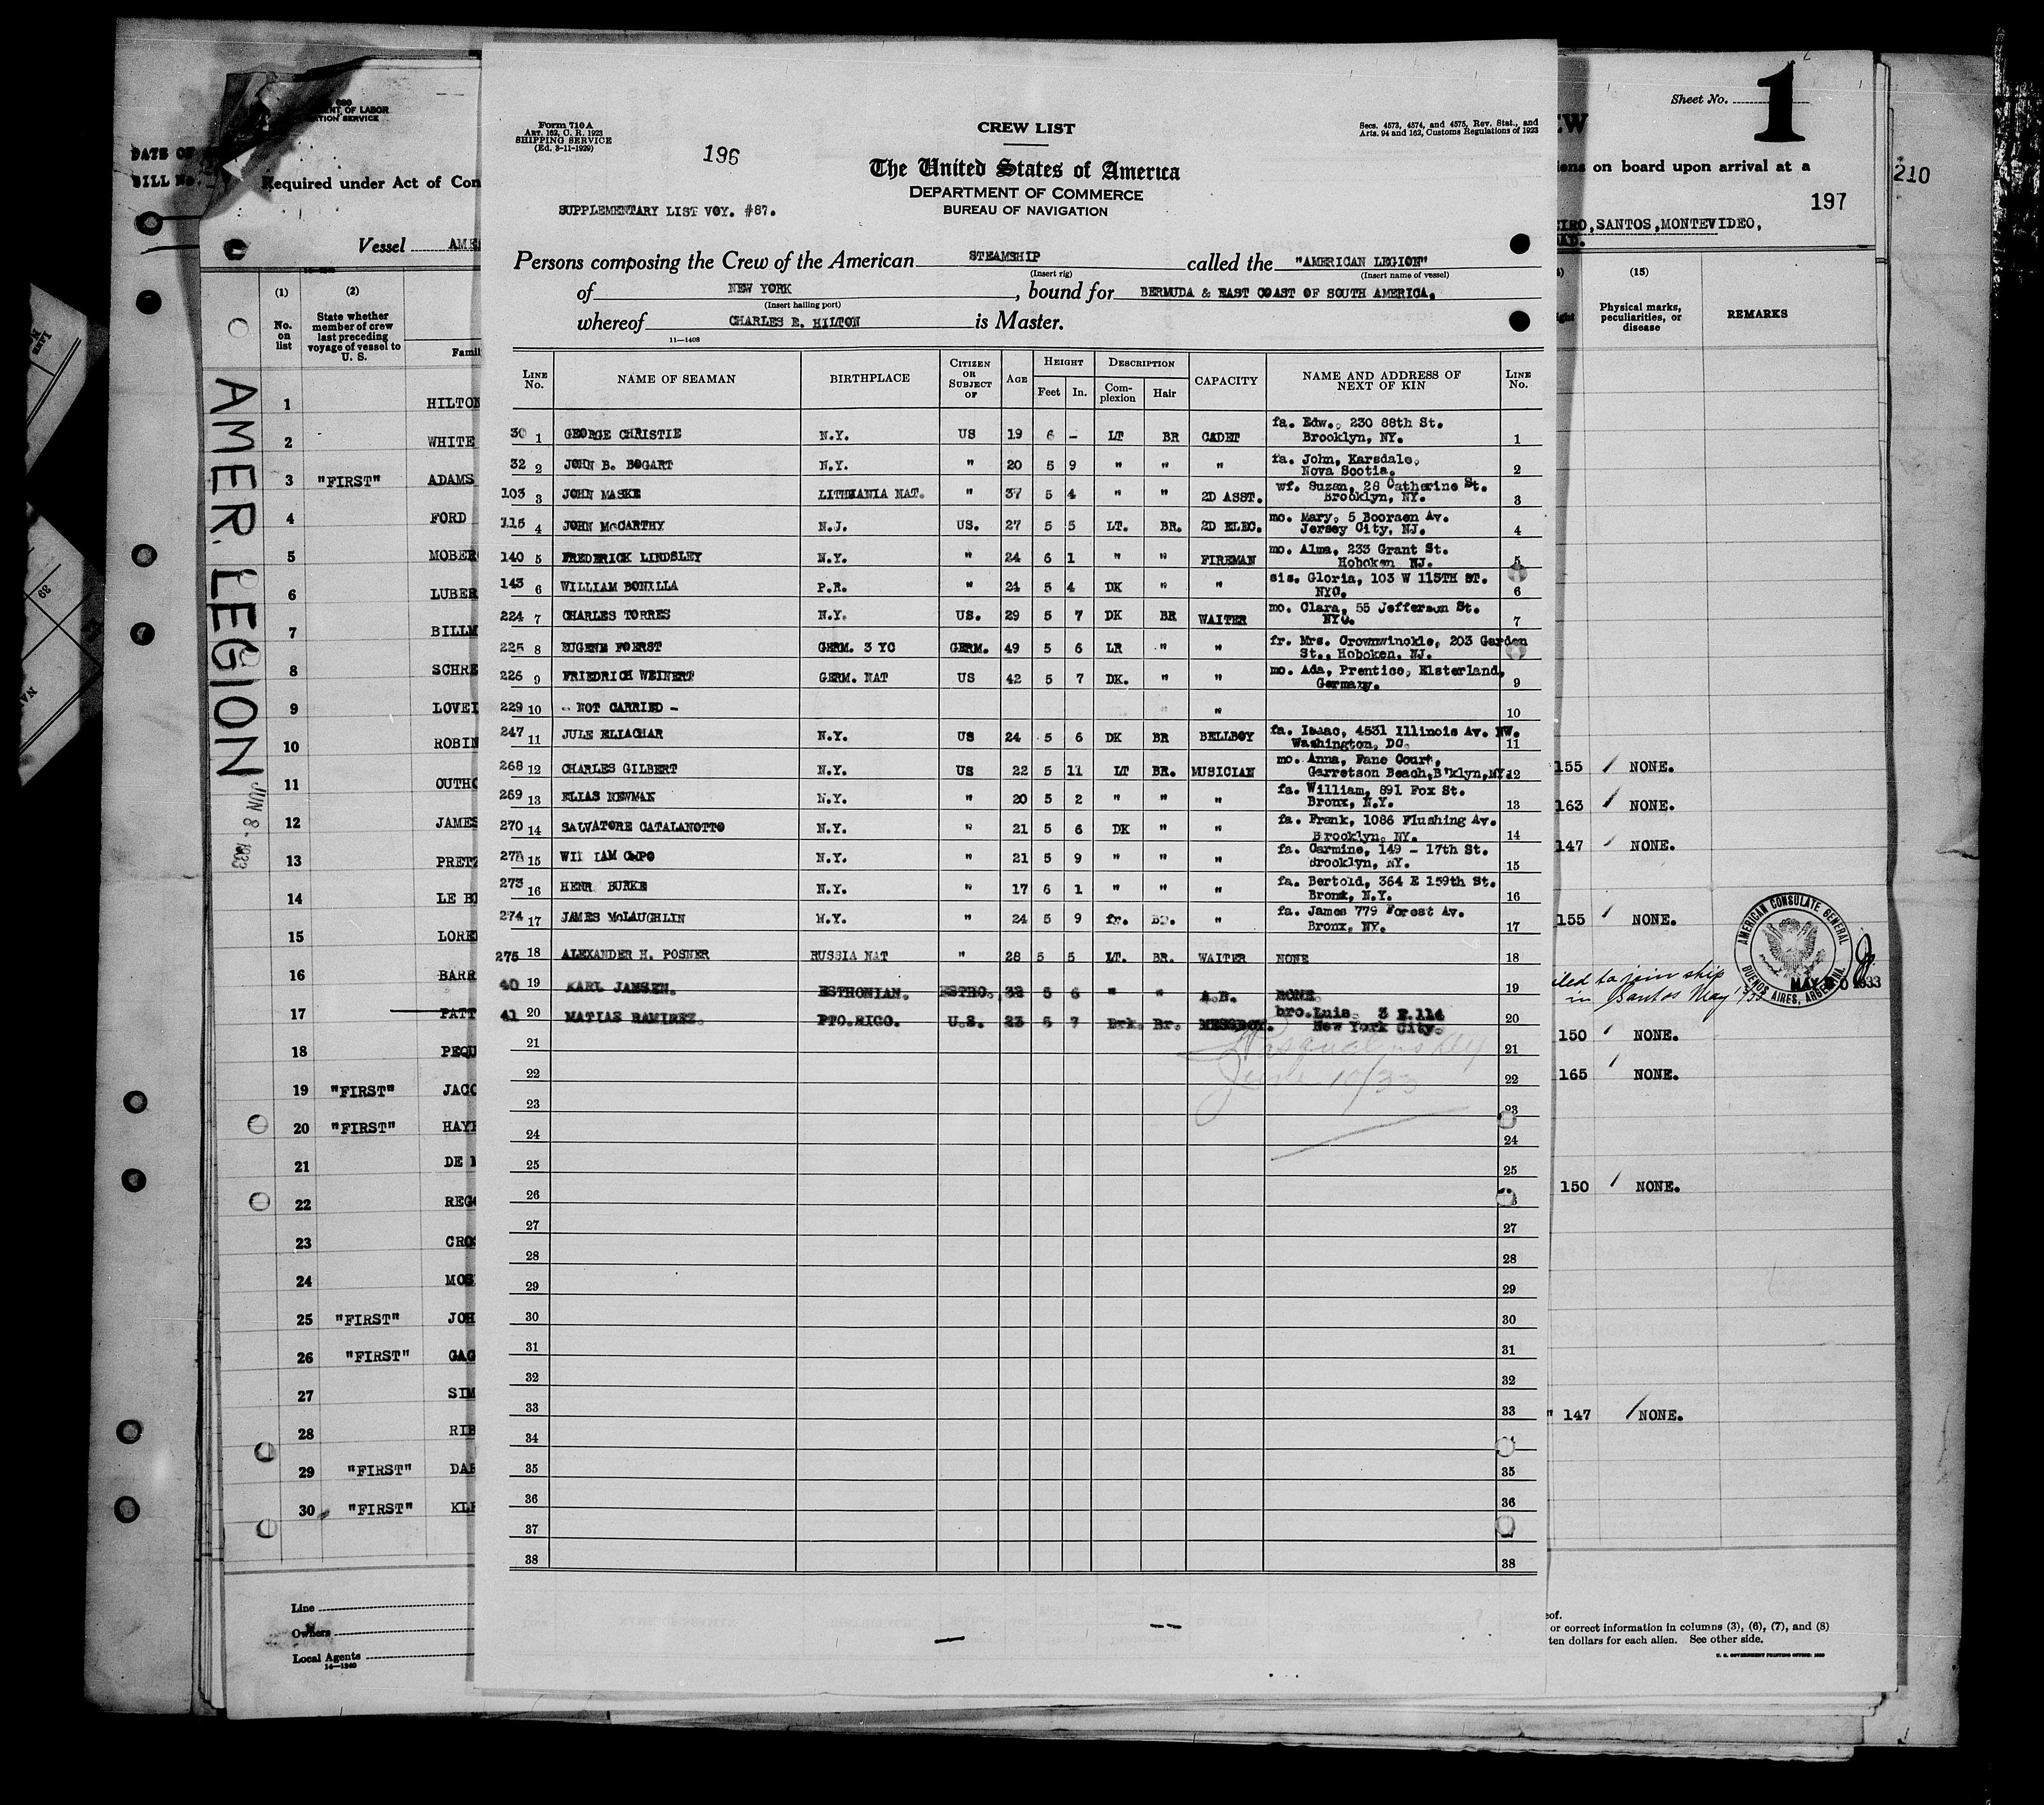 Form 710A
ART. 162, C. R. 1923
SHIPPING SERVICE
(Ed. 3-11-1929)
196
CREW LIST
Secs. 4573, 4574, and 4575, Rev. Stat., and
Arts. 94 and 162, Customs Regulations of 1923
The United States of America
DEPARTMENT OF COMMERCE
BUREAU OF NAVIGATION
SUPPLEMENTARY LIST VOY. #87.
Persons composing the Crew of the American STEAMSHIP called the "AMERICAN LEGION"
(Insert rig) (Insert name of vessel)
of NEW YORK, bound for BERMUDA & EAST COAST OF SOUTH AMERICA.
(Insert hailing port)
whereof CHARLES E. HILTON is Master.
11—1408
LINE No. NAME OF SEAMAN BIRTHPLACE CITIZEN OR SUBJECT OF AGE HEIGHT Feet In. DESCRIPTION Complexion Hair CAPACITY NAME AND ADDRESS OF NEXT OF KIN LINE No.
30 1 GEORGE CHRISTIE N.Y. US 19 6 - LT BR CADET fa. Edw., 230 88th St. Brooklyn, NY. 1
32 2 JOHN B. BOGART N.Y. " 20 5 9 " " " fa. John, Karsdale, Nova Scotia. 2
103 3 JOHN MASKE LITHUANIA NAT. " 37 5 4 " " 2D ASST. wf. Suzan, 28 Catherine St. Brooklyn, NY. 3
115 4 JOHN McCARTHY N.J. US. 27 5 5 LT. BR. 2D ELEC. mo. Mary, 5 Booraen Av. Jersey City, NJ. 4
140 5 FREDERICK LINDSLEY N.Y. " 24 6 1 " " FIREMAN mo. Alma, 233 Grant St. Hoboken NJ. 5
143 6 WILLIAM BONILLA P.R. " 24 5 4 DK " " sis. Gloria, 103 W 115TH ST. NYC. 6
224 7 CHARLES TORRES N.Y. US. 29 5 7 DK BR WAITER mo. Clara, 55 Jefferson St. NYC. 7
225 8 EUGENE FOERST GERM. 3 YC GERM. 49 5 6 LR " " fr. Mrs. Crownwinckle, 203 Garden St., Hoboken, NJ.
226 9 FRIEDRICH WEINERT GERM. NAT US 42 5 7 DK. " " mo. Ada, Prentice, Elsterland, Germany. 9
229 10 - NOT CARRIED - " " 10
247 11 JULE ELIACHAR N.Y. US 24 5 6 DK BR BELLBOY fa. Isaac, 4531 Illinois Av. NW. Washington, DC. 11
268 12 CHARLES GILBERT N.Y. US 22 5 11 LT BR. MUSICIAN mo. Anna, Fane Court, Garretson Beach, B'klyn, NY. 12
269 13 ELIAS NEWMAN N.Y. " 20 5 2 " " " fa. William, 891 Fox St. Bronx, N.Y. 13
270 14 SALVATORE CATALANOTTO N.Y. " 21 5 6 DK " " fa. Frank, 1086 Flushing Av. Brooklyn, NY. 14
15 WIL IAM CUPO N.Y. " 21 5 9 " " " fa. Carmine, 149 - 17th St. Brooklyn, NY. 15
273 16 HENR BURKE N.Y. " 17 6 1 " " " fa. Bertold, 364 E 159th St. Bronx, N.Y. 16
274 17 JAMES McLAUGHLIN N.Y. " 24 5 9 fr. Br. " fa. James 779 Forest Av. Bronx, NY. 17
275 18 ALEXANDER H. POSNER RUSSIA NAT " 28 5 5 LT. BR. WAITER NONE 18
40 19 KARL JANSEN. ESTHONIAN. ESTHO. 32 5 6 " " A.B. NONE 19
41 20 MATIAS RAMIREZ. PTO.RICO. U.S. 23 5 7 Drk. Br. MESSBOY. bro. Luis. 3 E.114 New York City. 20
21 21
22 June 10/33 22
23 23
24 24
25 25
26
27 27
28 28
29 29
30 30
31 31
32 32
33 33
34
35 35
36 36
37
38 38
DATE OF
BILL No.
NT OF LABOR
ATION SERVICE
Required under Act of Con
Vessel AME
(1) (2)
No. on list
State whether member of crew last preceding voyage of vessel to U. S.
Famil
1 HILTON
2 WHITE
3 "FIRST" ADAMS
4 FORD
5 MOBER
6 LUBER
7 BILLM
8 SCHRE
9 LOVEI
10 ROBIN
11 OUTHO
12 JAMES
13 PRETZ
14 LE B
15 LORE
16 BARR
17 PATT
18 PEQU
19 "FIRST" JACO
20 "FIRST" HAY
21 DE
22 REG
23 CRO
24 MOS
25 "FIRST" JOH
26 "FIRST" GAG
27 SIM
28 RI
29 "FIRST" DA
30 "FIRST" KL
Line
Owners
Local Agents
14—1240
AMER. LEGION
JUN 8 - 1933
Sheet No. 1
EW
iens on board upon arrival at a
197
210
EIRO, SANTOS, MONTEVIDEO,
AD.
(15)
Physical marks, peculiarities, or disease
REMARKS
155 NONE.
163 NONE.
147 NONE.
155 NONE.
AMERICAN CONSULATE GENERAL
BUENOS AIRES, ARGENTINA.
iled to join ship
in Santos May
150 NONE.
165 NONE.
150 NONE.
147 NONE.
eof.
or correct information in columns (3), (6), (7), and (8)
ten dollars for each alien. See other side.
U. S. GOVERNMENT PRINTING OFFICE